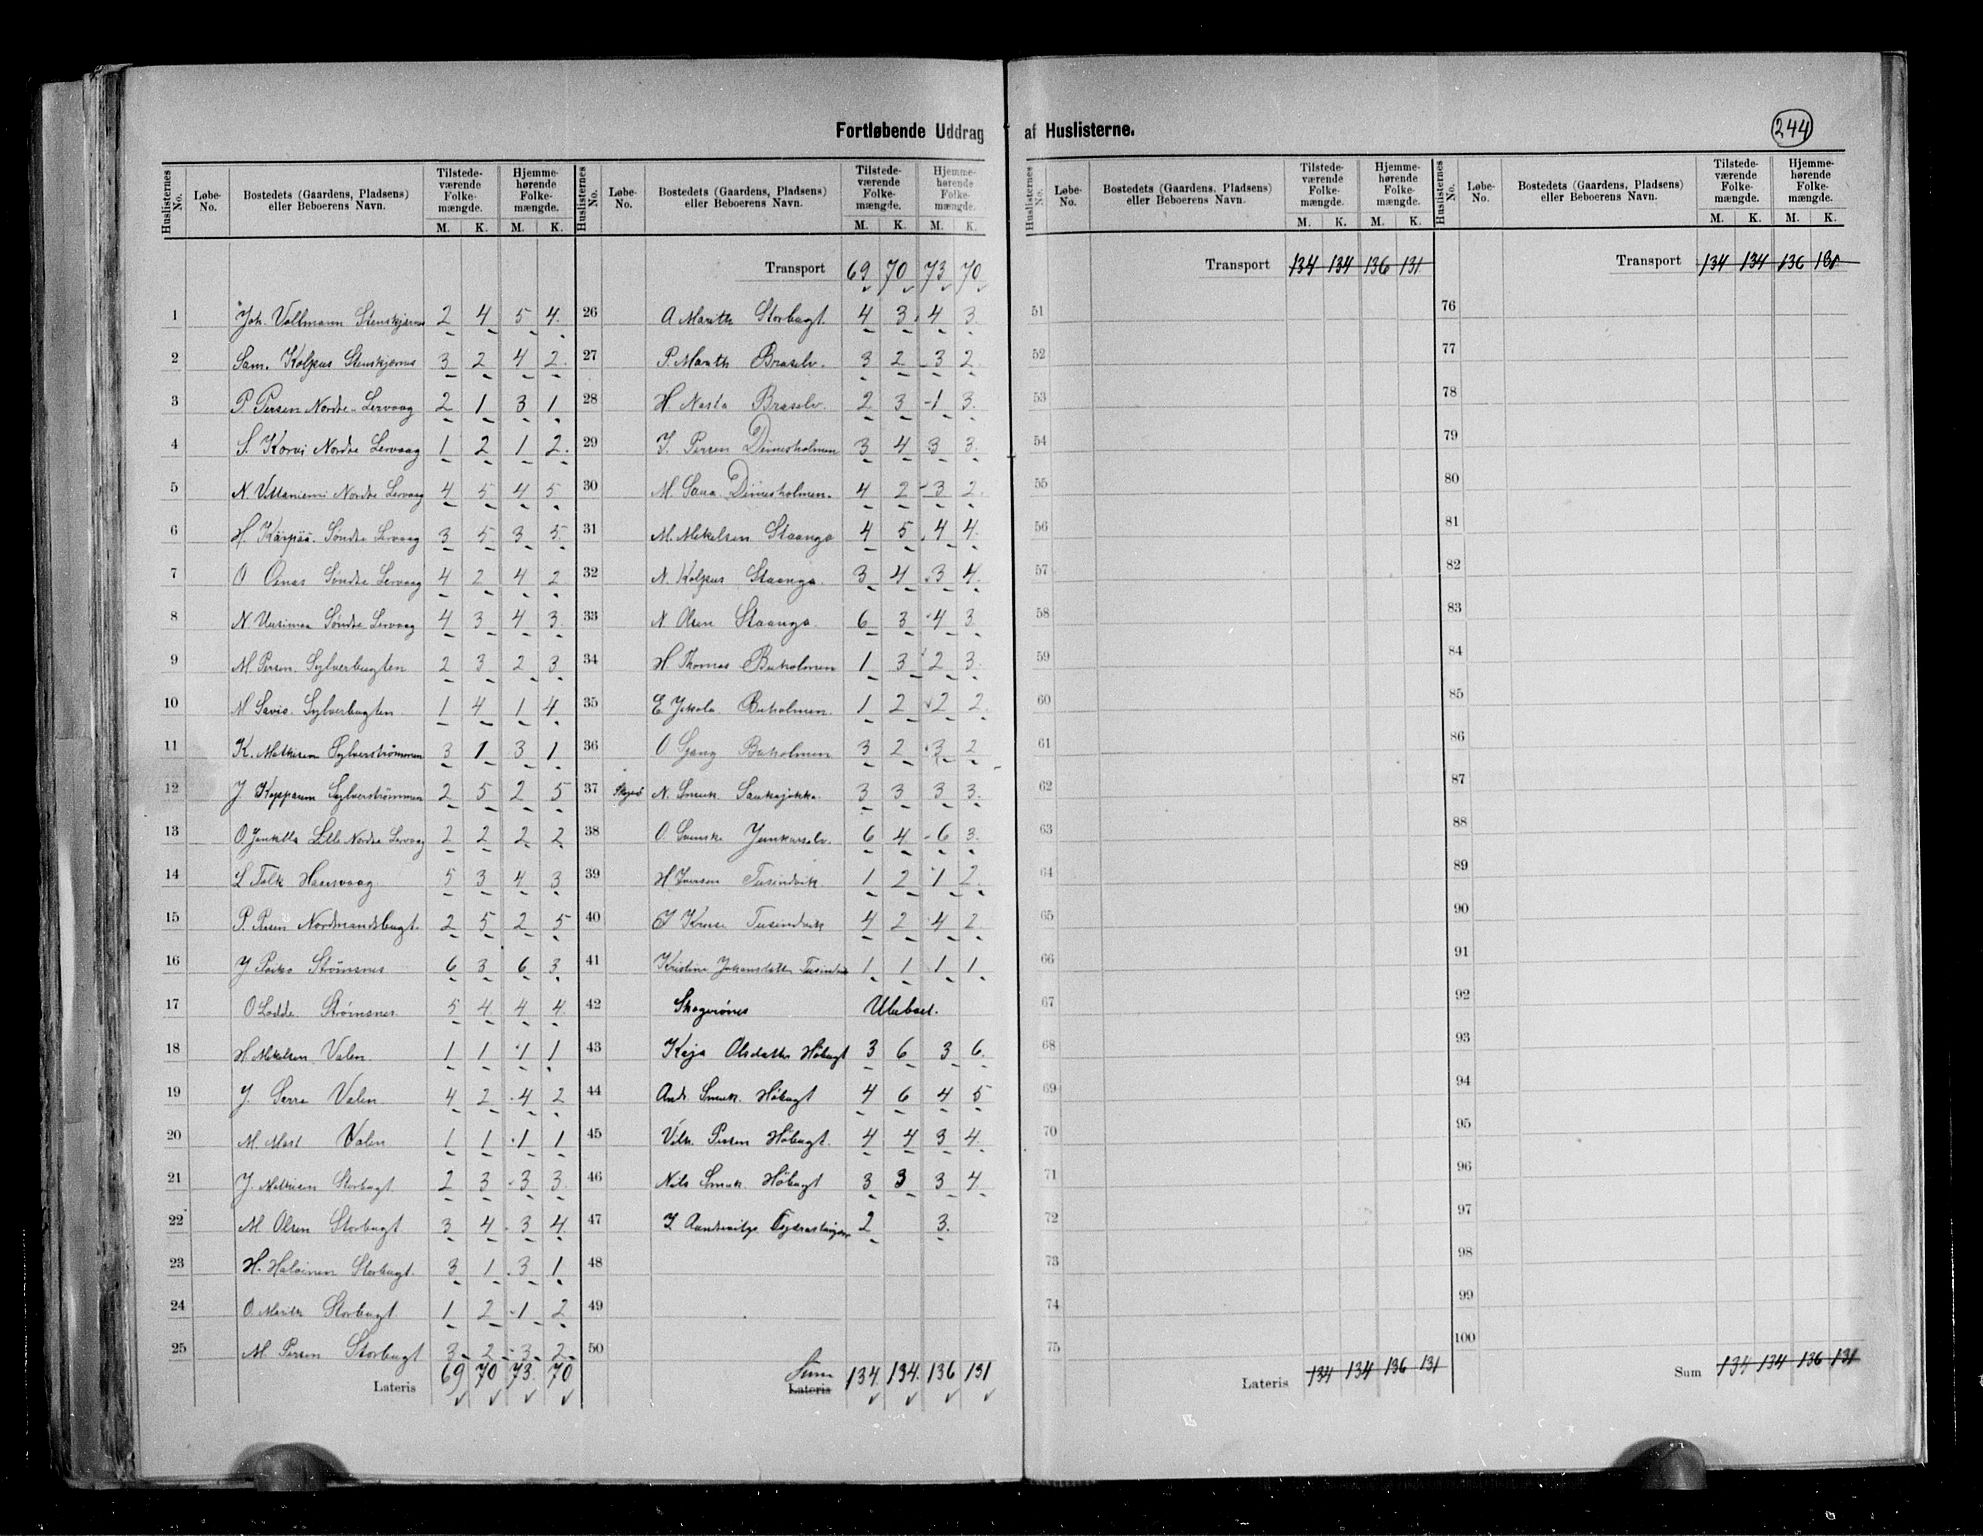 Fortløbende Uddrag af Huslisterne.
244
Huslisternes No. Løbe-No. Bostedets (Gaardens, Pladsens) eller Beboerens Navn. Tilstedeværende Folkemængde. M. K. Hjemmehørende Folkemængde. M. K.
1 Joh. Vollmann Stenskjærnes 2 4 5 4
2 Sam. Kolpus Stenskjærnes 3 2 4 2
3 P Persen Nordre Lervaag 2 1 3 1
4 S. Korvi Nordre Lervaag 1 2 1 2
5 N. Vittaniemi Nordre Lervaag 4 5 4 5
6 H. Karpää Søndre Lervaag 3 5 3 5
7 O Oinas Søndre Lervaag 4 2 4 2
8 N. Uusimaa Søndre Lervaag 4 3 4 3
9 M. Persen Sylverbugten 2 3 2 3
10 M Savio Sylverbugten 1 4 1 4
11 K. Mathisen Sylverstrømmen 3 1 3 1
12 J Sylverstrømmen 2 5 2 5
13 O. Lille Nordre Lervaag 2 2 2 2
14 L Falk 5 3 4 3
15 P. Persen Nordmandsbugt. 2 5 2 5
16 J Poiko Strømsnes 6 3 6 3
17 O Lodde Strømsnes 5 4 4 4
18 H. Mikelsen Valen 1 1 1 1
19 J. Serre Valen 4 2 4 2
20 M. Mart Valen 1 1 1 1
21 J. Mathisen Storbugt 2 3 3 3
22 M. Olsen Storbugt 3 4 3 4
23 H. Haloinen Storbugt. 3 1 3 1
24 O. Marith Storbugt 1 2 1 2
25 M Persen Storbugt 3 2 3 2
Lateris 69 70 73 70
Transport 69 70 73 70
26 A Marith Storbugt 4 3 4 3
27 P. Marith Braselv. 3 2 3 2
28 H Nasta Braselv. 2 3 1 3
29 J. Persen Dimesholmen 3 4 3 3
30 M. Sara Dimesholmen 4 2 3 2
31 M. Mikelsen Staanga 4 5 4 4
32 N. Kolpus Staanga 3 4 3 4
33 N Olsen Staanga 6 3 4 3
34 H Thomas Buholmen 1 3 2 3
35 E Jokela Buholmen 1 2 2 2
36 O Gang Buholmen 3 2 3 2
37 N. Smuk 3 3 3 3
38 O. Svensk Junkurselv 6 4 6 3
39 H Iversen Tusindvik 1 2 1 2
40 J Kruse Tusindvik 4 2 4 2
41 Kristine Johansdatter Tusindvik 1 1 1 1
42 Skogerønes Ubeboet.
43 Kaja Olsdatter Høbugt 3 6 3 6
44 And. Smuk Høbugt 4 6 4 5
45 Vilh. Persen Høbugt 4 4 3 4
46 Nils Smuk Høbugt 3 3 3 4
47 2 3
48
49
50
Sum Lateris 134 134 136 131
Huslisternes No. Løbe-No. Bostedets (Gaardens, Pladsens) eller Beboerens Navn. Tilstedeværende Folkemængde. M. K. Hjemmehørende Folkemængde. M. K.
Transport 134 134 136 131
51
52
53
54
55
56
57
58
59
60
61
62
63
64
65
66
67
68
69
70
71
72
73
74
75
Lateris 134 134 136 131
Transport 134 134 136 131
76
77
78
79
80
81
82
83
84
85
86
87
88
89
90
91
92
93
94
95
96
97
98
99
100
Sum 134 134 136 131